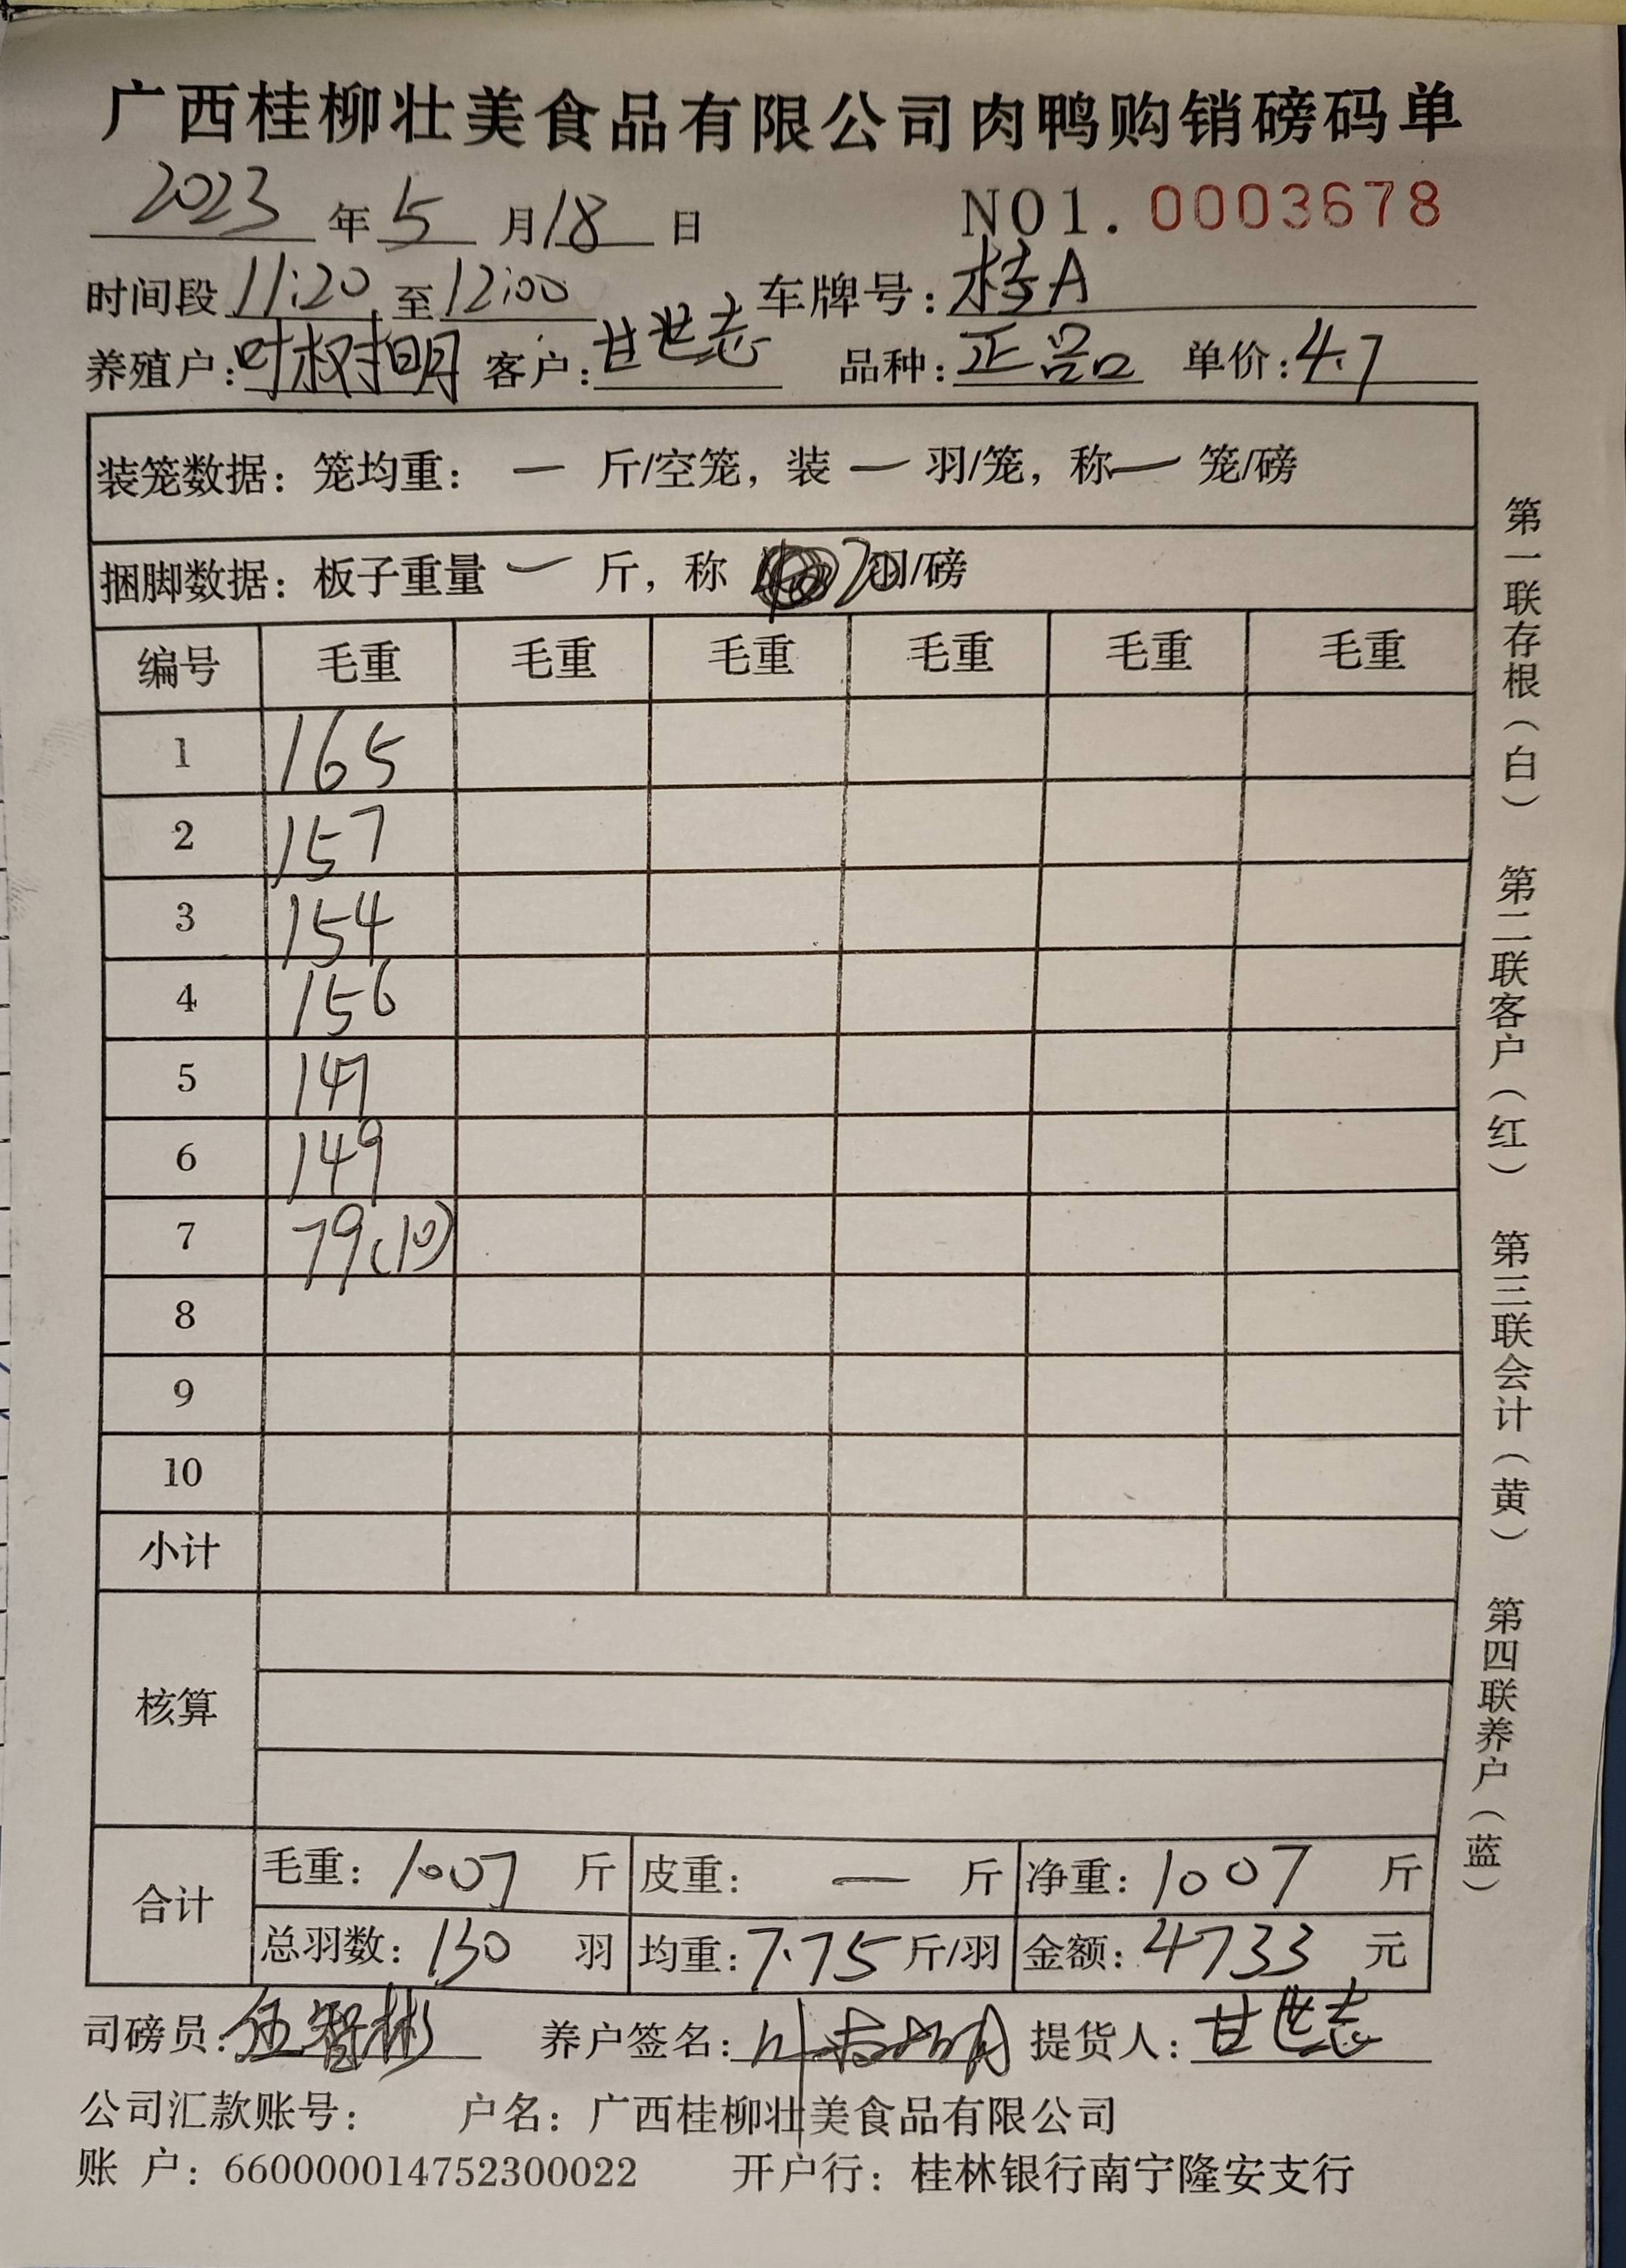 广西桂柳壮美食品有限公司肉鸭购销磅码单
2023 年 5 月 18 日 NO1. 0003678
时间段 11:20 至 12:00 车牌号: 桂A
养殖户: 叶树明 客户: 甘世志 品种: 正品 单价: 4.7
装笼数据: 笼均重: — 斤/空笼, 装 — 羽/笼, 称 — 笼/磅
捆脚数据: 板子重量 — 斤, 称 羽/磅
编号 毛重 毛重 毛重 毛重 毛重 毛重
1 165
2 157
3 154
4 156
5 147
6 149
7 79(10)
8
9
10
小计
核算
合计 毛重: 1007 斤 皮重: — 斤 净重: 1007 斤
总羽数: 130 羽 均重: 7.75 斤/羽 金额: 4733 元
司磅员: 伍智彬 养户签名: 叶树明 提货人: 甘世志
公司汇款账号: 户名: 广西桂柳壮美食品有限公司
账 户: 660000014752300022 开户行: 桂林银行南宁隆安支行
第一联存根（白） 第二联客户（红） 第三联会计（黄） 第四联养户（蓝）